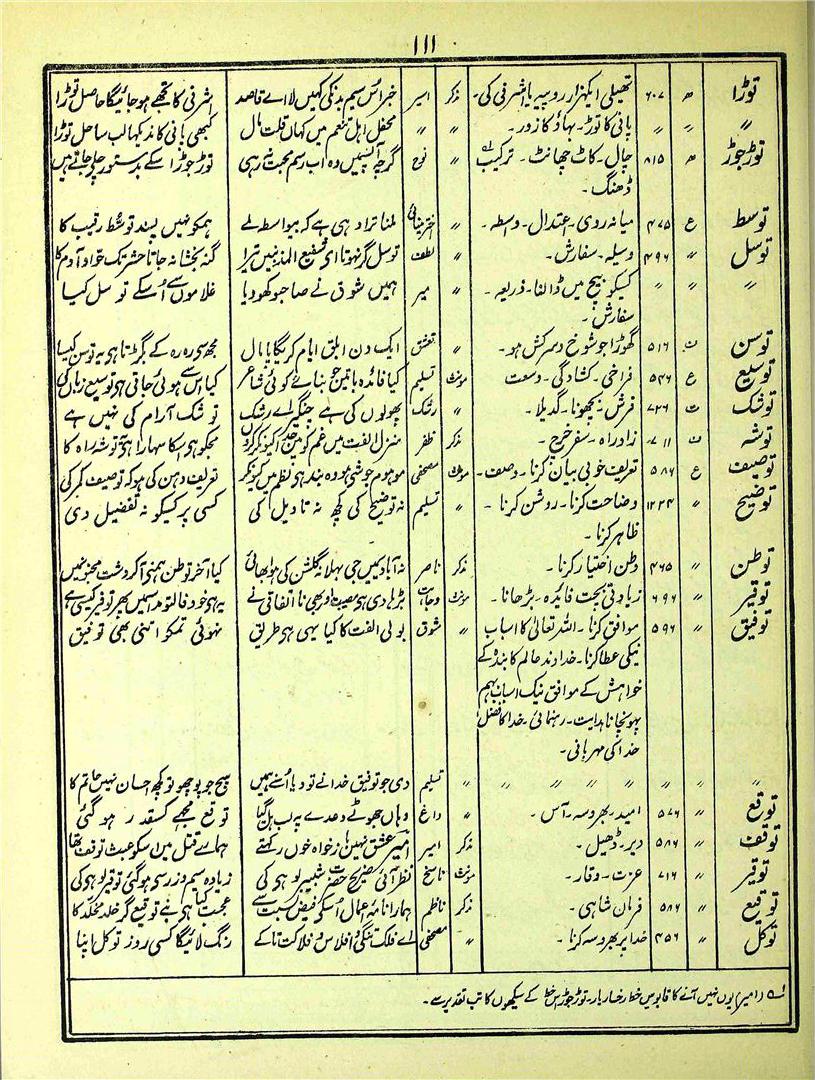 ۱۱۱
توڑا ھ ۶۰۷ تھیلی ایکہزار روپیہ یا اشرفی کی۔ مذکر امیر خبر اُس سیم بدن کی کہیں لا اے قاصد اشرفی کا تجھے ہو جائیگا حاصل توڑا
〃 〃 〃 پانی کا توڑ۔ بہاؤ کا زور۔ 〃 〃 محفل اہل تنعم میں کہاں قلت مال کبھی پانی کا نہ دیکھا لب ساحل توڑا
توڑ جوڑ ھ ۸۱۵ چال۔ کاٹ چھانٹ۔ ترکیب 〃 نوح گرچہ آپسمیں وہ اب رسم محبت نہ رہی توڑ جوڑ اسکے بدستور چلے جاتے ہیں
ڈھنگ۔
توسط ع ۴۷۵ میانہ روی۔ اعتدال۔ وسطہ۔ 〃 اختر مینائی ملنا ترا وہی ہے کہ بیواسطہ ملے ہمکو نہیں پسند توسط رقیب کا
توسل 〃 ۴۹۶ وسیلہ۔ سفارش۔ 〃 لطف توسل گر نہوتا ای شفیع المذنبیں تیرا گنہ بخشا نہ جاتا حشر تک حوا و آدم کا
〃 〃 〃 کسیکو بیچ میں ڈالنا۔ ذریعہ۔ 〃 میر ہمیں شوق نے صاحبو کھو دیا غلاموں سے اُسکے توسل کیا
سفارش۔
توسن ف ۵۱۶ گھوڑا جو شوخ و سرکش ہو۔ 〃 تعشق ایک دن ابلق ایام کریگا پامال مجھسی رہ رہ کے بگڑتا ہی یہ توسن کیسا
توسیع ع ۵۴۶ فراخی۔ کشادگی۔ وسعت مونث تسلیم کیا فائدہ باتیں جو بنائے کوئی شاعر کیا اس سے ہوئی جاتی ہی توسیع زباں کی
توشک ت ۷۲۶ فرش۔ بچھونا۔ گدیلا۔ 〃 رشک پھولوں کی ہے چنگیر اے رشک توشک آرام کی نہیں ہے
توشہ ف ۷۱۱ زاد راہ۔ سفر خرچ۔ مذکر ظفر منزل الفت میں غم کو میں مجکو ہی اسکا سہارا ہی توشہ راہ کا
توصیف ع ۵۸۶ تعریف خوبی بیان کرنا۔ وصف۔ مونث مصحفی موہوم جو شی ہو وہ بندہی نظم میں کیونکر تعریف دہن کی ہو کہ توصیف کمر کی
توضیح 〃 ۱۲۲۴ وضاحت کرنا۔ روشن کرنا۔ 〃 تسلیم نہ توضیح کی کچھ نہ تاویل کی کسی پر کسیکو نہ تفضیل دی
ظاہر کرنا۔
توطن 〃 ۴۶۵ وطن اختیار کرنا۔ مذکر ناصر نہ آباد میں جی بہلا نہ گلشن کی ہوا بھائی کیا آخر توطن ہمنے آ کر دشت مجنوں میں
توفیر 〃 ۶۹۶ زیادتی بچت فائدہ۔ بڑھانا۔ مونث وجاہت بڑہا دی ہی مصیبت اور بھی نا اتفاقی نے یہ ہی خود فالتو مد اسمیں پھر توفیر کیسی ہے
توفیق 〃 ۵۹۶ موافق کرنا۔ اللہ تعالیٰ کا اسباب 〃 شوق بولی الفت کا کیا یہی ہی طریق نہوئی تمکو اتنی بھی توفیق
نیکی عطا کرنا۔ خداوند عالم کا بندہ کے
خواہش کے موافق نیک اسباب بہم
پہونچانا ہدایت۔ رہنمائی۔ خدا کا فضل
خدا کی مہربانی۔
〃 〃 〃 〃 〃 〃 〃 تسلیم دی جو توفیق خدا نے تو دیا اُسنے ہمیں سچ جو پوچھو تو کچھ احسان نہیں حاتم کا
توقع 〃 ۵۷۶ امید۔ بھروسہ۔ آس۔ 〃 داغ وہاں جھوٹے وعدے پہ لب ہل گیا توقع مجھے کسقدر ہو گئی
توقف 〃 ۵۸۶ دیر۔ ڈھیل۔ مذکر امیر امیر عشق نہیں باز خواہ خوں رکھتے ہمارے قتل میں اسکو عبث توقف تھا
توقیر 〃 ۷۱۶ عزت۔ وقار۔ مونث ناسخ نظر آئی ضریح حضرت شبیر لوہے کی زیادہ سیم و زر سی ہو گئی توقیر لوہی کی
توقیع 〃 ۵۸۶ فرمان شاہی۔ مذکر ناظم ہمارا نامۂ اعمال اُسکو فیض نسبت سے عجب کیا ہی بنے توقیع گر خلد مخلد کا
توکل 〃 ۴۵۶ خدا پر بھروسہ کرنا۔ 〃 مصحفی اے فلک تنگی و افلاس و فلاکت تا کے رنگ لائیگا کسی روز توکل اپنا
لہ (امیر) یوں نہیں آنے کا قابو میں خط رخسار یار۔ توڑ جوڑ اس خط کے سیکھوں کاتب تقدیر سے۔